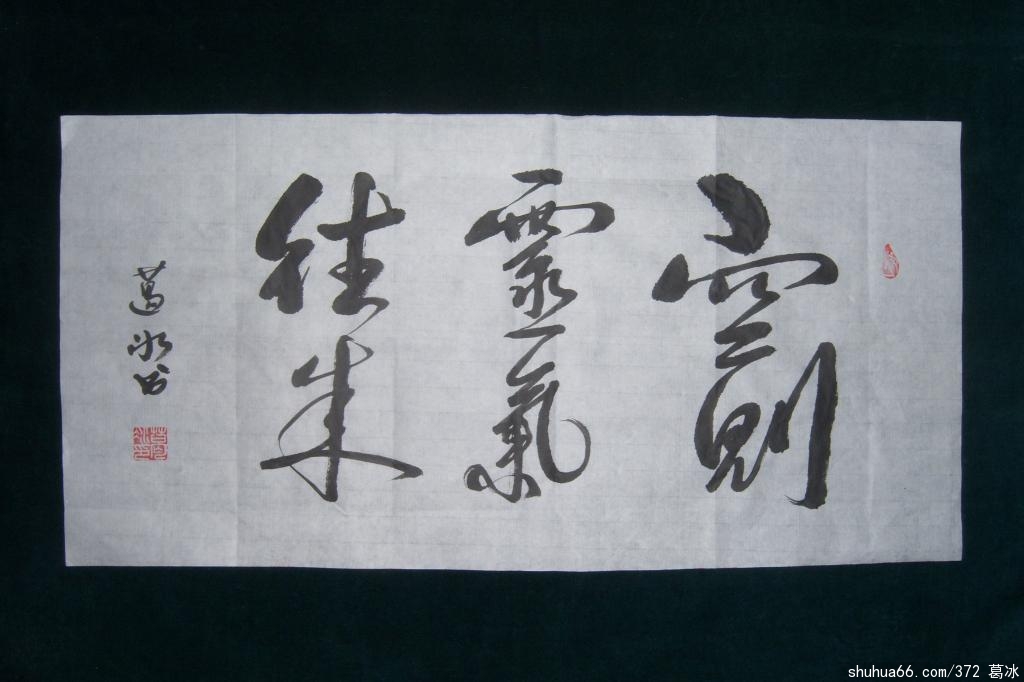 空则
靈氣
往来
葛冰书
shuhua66.com/372 葛冰